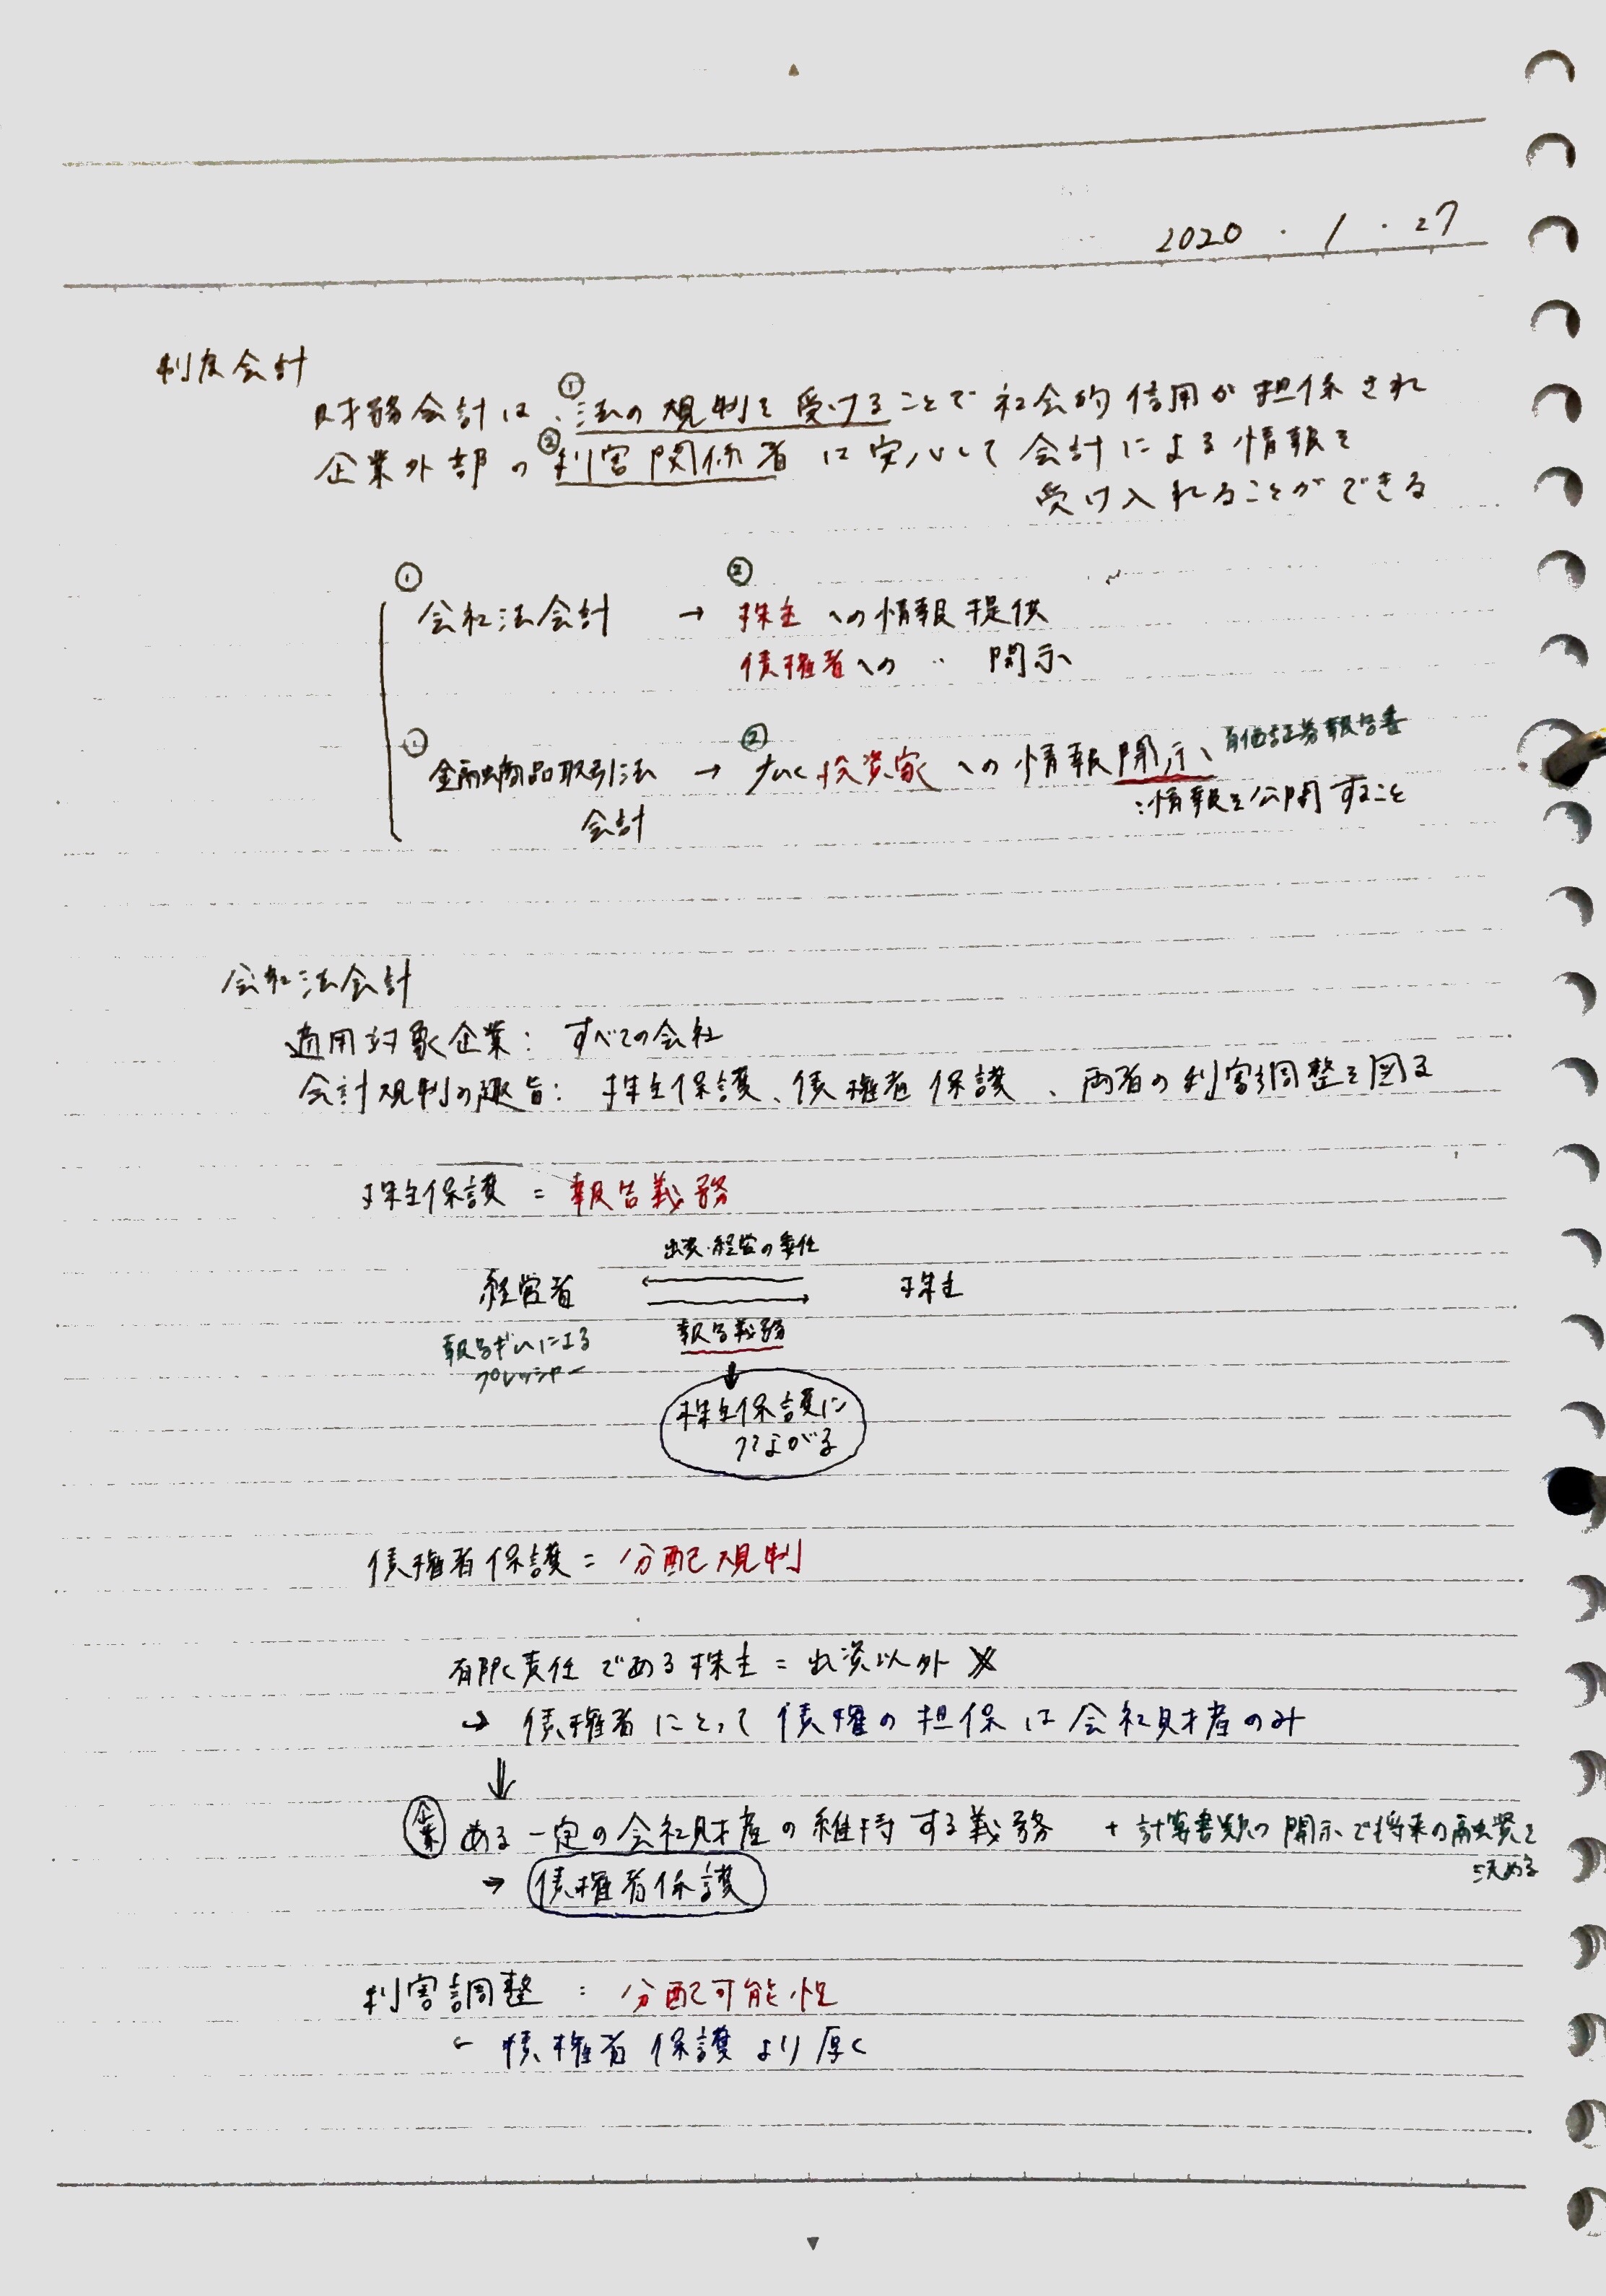 2020 . 1 . 27
制度会計
財務会計は、①法の規制を受けることで社会的信用が担保され
企業外部の②利害関係者に安心して会計による情報を
受け入れることができる
① ②
会社法会計 → 株主への情報提供
債権者への 〃 開示
① ② 有価証券報告書
金融商品取引法 → 広く投資家への情報開示
会計 :情報を公開すること
会社法会計
適用対象企業: すべての会社
会計規制の趣旨: 株主保護、債権者保護、両者の利害調整を図る
株主保護 = 報告義務
出資・経営の委任
経営者 株主
報告ギムによる 報告義務
プレッシャー
↓
株主保護に
つながる
債権者保護 = 分配規制
有限責任である株主 = 出資以外 ✗
→ 債権者にとって債権の担保は会社財産のみ
↓
企業 ある一定の会社財産の維持する義務 + 計算書類の開示で将来の融資を
決める
→ 債権者保護
利害調整 : 分配可能性
債権者保護より厚く